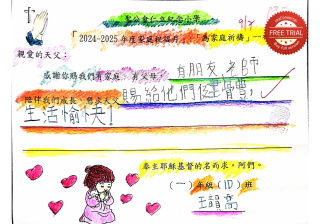 聖公會仁立紀念小學
9/7
「2024-2025年度家庭祝福卡」「為家庭祈禱」一
FREE TRIAL
親愛的天父：
感謝你賜我們有家庭，有父母，有朋友，老師
陪伴我們成長，懇求天父賜給他們健康，
生活愉快！
奉主耶穌基督的名而求，阿們。
(一)年級(1D)班
王